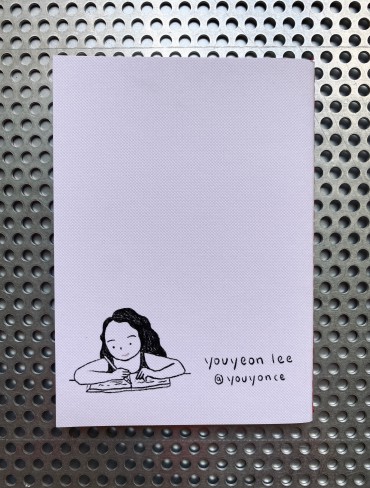 youyeon lee
@youyonce